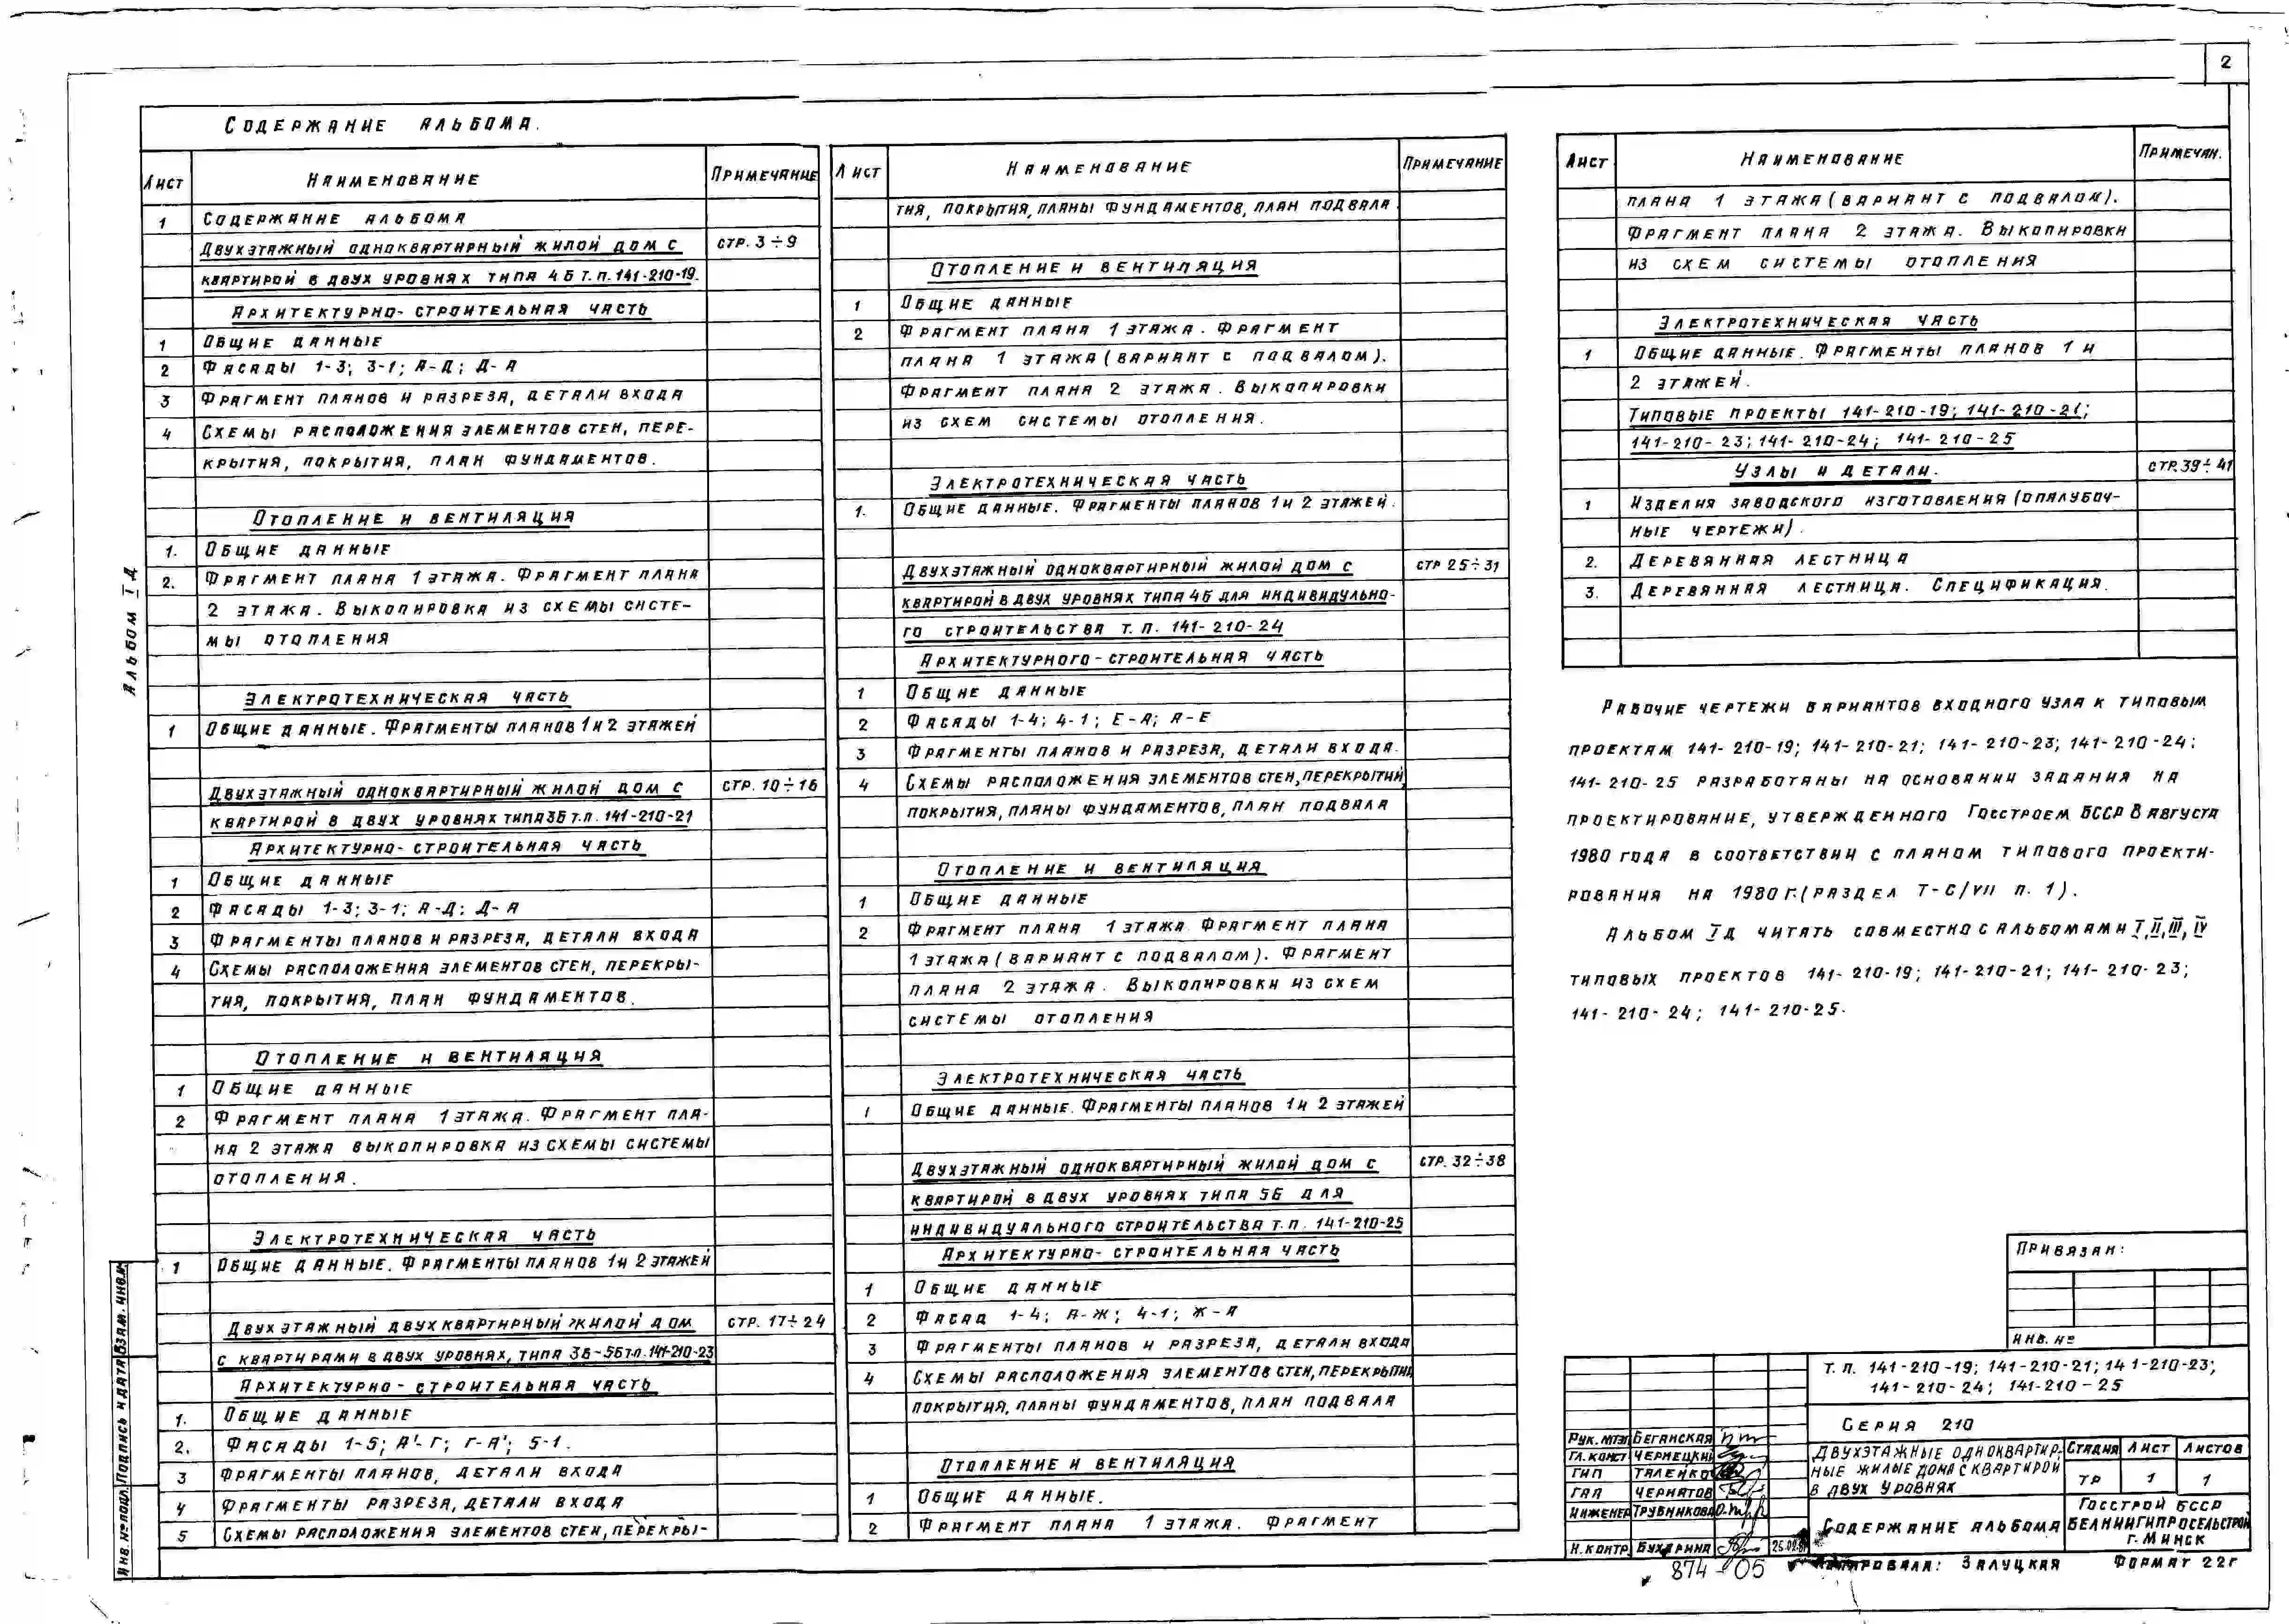 2
Содержание альбома.
Лист Наименование Примечание
1 Содержание альбома
Двухэтажный одноквартирный жилой дом с стр. 3÷9
квартирой в двух уровнях типа 4Б т.п. 141-210-19.
Архитектурно-строительная часть
1 Общие данные
2 Фасады 1-3; 3-1; А-Д; Д-А
3 Фрагмент планов и разреза, детали входа
4 Схемы расположения элементов стен, пере-
крытия, покрытия, план фундаментов.
Отопление и вентиляция
1. Общие данные
2. Фрагмент плана 1 этажа. Фрагмент плана
2 этажа. Выкопировка из схемы систе-
мы отопления
Электротехническая часть
1 Общие данные. Фрагменты планов 1 и 2 этажей
Двухэтажный одноквартирный жилой дом с стр. 10÷16
квартирой в двух уровнях типа 3Б т.п. 141-210-21
Архитектурно-строительная часть
1 Общие данные
2 Фасады 1-3; 3-1; А-Д; Д-А
3 Фрагменты планов и разреза, детали входа
4 Схемы расположения элементов стен, перекры-
тия, покрытия, план фундаментов.
Отопление и вентиляция
1 Общие данные
2 Фрагмент плана 1 этажа. Фрагмент пла-
на 2 этажа выкопировка из схемы системы
отопления.
Электротехническая часть
1 Общие данные. Фрагменты планов 1 и 2 этажей
Двухэтажный двухквартирный жилой дом стр. 17÷24
с квартирами в двух уровнях, типа 3Б-5Б т.п. 141-210-23
Архитектурно-строительная часть
1. Общие данные
2. Фасады 1-5; А'-Г; Г-А'; 5-1.
3 Фрагменты планов, детали входа
4 Фрагменты разреза, детали входа
5 Схемы расположения элементов стен, перекры-
Лист Наименование Примечание
тия, покрытия, планы фундаментов, план подвала.
Отопление и вентиляция
1 Общие данные
2 Фрагмент плана 1 этажа. Фрагмент
плана 1 этажа (вариант с подвалом).
Фрагмент плана 2 этажа. Выкопировки
из схем системы отопления.
Электротехническая часть
1. Общие данные. Фрагменты планов 1 и 2 этажей.
Двухэтажный одноквартирный жилой дом с стр 25÷31
квартирой в двух уровнях типа 4Б для индивидуально-
го строительства т.п. 141-210-24
Архитектурного-строительная часть
1 Общие данные
2 Фасады 1-4; 4-1; Е-А; А-Е
3 Фрагменты планов и разреза, детали входа.
4 Схемы расположения элементов стен, перекрытий,
покрытия, планы фундаментов, план подвала
Отопление и вентиляция
1 Общие данные
2 Фрагмент плана 1 этажа Фрагмент плана
1 этажа (вариант с подвалом). Фрагмент
плана 2 этажа. Выкопировки из схем
системы отопления
Электротехническая часть
1 Общие данные. Фрагменты планов 1 и 2 этажей
Двухэтажный одноквартирный жилой дом с стр. 32÷38
квартирой в двух уровнях типа 5Б для
индивидуального строительства т.п. 141-210-25
Архитектурно-строительная часть
1 Общие данные
2 Фасад 1-4; А-Ж; 4-1; Ж-А
3 Фрагменты планов и разреза, детали входа
4 Схемы расположения элементов стен, перекрытий
покрытия, планы фундаментов, план подвала
Отопление и вентиляция
1 Общие данные.
2 Фрагмент плана 1 этажа. Фрагмент
Лист Наименование Примечан.
плана 1 этажа (вариант с подвалом).
Фрагмент плана 2 этажа. Выкопировки
из схем системы отопления
Электротехническая часть
1 Общие данные. Фрагменты планов 1 и
2 этажей.
Типовые проекты 141-210-19; 141-210-21;
141-210-23; 141-210-24; 141-210-25
Узлы и детали. стр. 39÷41
1 Изделия заводского изготовления (опалубоч-
ные чертежи).
2. Деревянная лестница
3. Деревянная лестница. Спецификация.
Рабочие чертежи вариантов входного узла к типовым
проектам 141-210-19; 141-210-21; 141-210-23; 141-210-24;
141-210-25 разработаны на основании задания на
проектирование, утвержденного Госстроем БССР 8 августа
1980 года в соответствии с планом типового проекти-
рования на 1980 г. (раздел Т-С/VII п. 1).
Альбом IД читать совместно с альбомами I, II, III, IV
типовых проектов 141-210-19; 141-210-21; 141-210-23;
141-210-24; 141-210-25.
Альбом IД
Инв.№ подл. Подпись и дата Взам. инв.№
Привязан:
Инв. №
Т.п. 141-210-19; 141-210-21; 141-210-23;
141-210-24; 141-210-25
Серия 210
Рук. МТЭП Беганская
Гл. конст Чернецкий
ГИП Таленко
ГАП Чернятов
Инженер Трубникова
Н. контр. Бухарина
Двухэтажные одноквартир-
ные жилые дома с квартирой
в двух уровнях
Стадия Лист Листов
ТР 1 1
Содержание альбома
Госстрой БССР
БЕЛНИИГИПРОСЕЛЬСТРОЙ
г. Минск
874-05
Копировала: Залуцкая Формат 22г